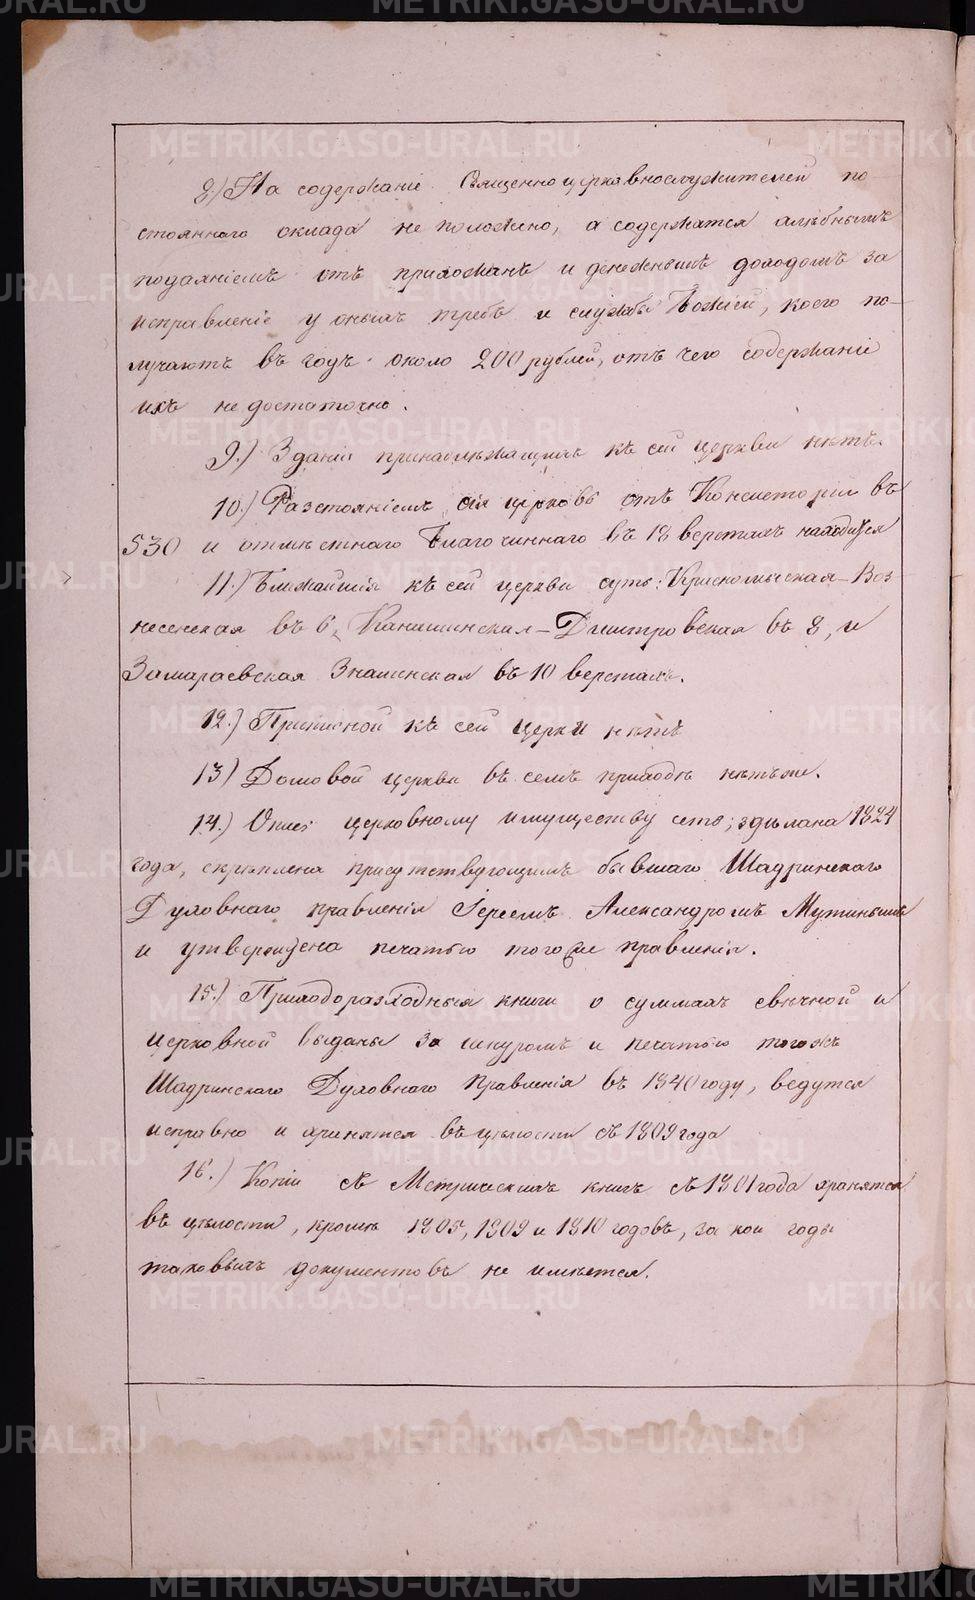 8.) На содержаніе Священноцерковнослужителей по-
стояннаго оклада не положено, а содержатся хлѣбнымъ
подаяніемъ отъ прихожанъ и денежнымъ доходомъ за
исправленіе у оныхъ требъ и службы Божіей, коего по-
лучаютъ въ годъ около 200 рублей, отъ чего содержаніе
ихъ недостаточно.
9.) Зданій принадлежащихъ къ сей церкви нѣтъ.
10.) Разстояніемъ сія церковь отъ Консисторіи въ
530 и отмѣстнаго Благочиннаго въ 18 верстахъ находится
11.) Ближайшія къ сей церкви суть: Красномыская-Воз-
несенская въ 6, Канашинская-Дмитровская въ 8, и
Замараевская Знаменская въ 10 верстахъ.
12.) Приписной къ сей церкви нѣтъ
13) Домовой церкви въ семъ приходѣ нѣтъже.
14.) Опись церковному имуществу есть; здѣлана 1824
года, скрѣплена присутствующимъ бывшаго Шадринскаго
Духовнаго правленія Іереемъ Александромъ Мутинымъ
и утверждена печатью того же правленія.
15.) Приходоразходныя книги о суммахъ свѣчной и
церковной выданы за шнуромъ и печатью тогожъ
Шадринскаго Духовнаго Правленія въ 1840 году, ведутся
исправно и хранятся въ цѣлости съ 1809 года
16.) Копіи съ Метрическихъ книгъ съ 1801 года хранятся
въ цѣлости, кромѣ 1805, 1809 и 1810 годовъ, за кои годы
таковыхъ документовъ не имѣется.
METRIKI.GASO-URAL.RU